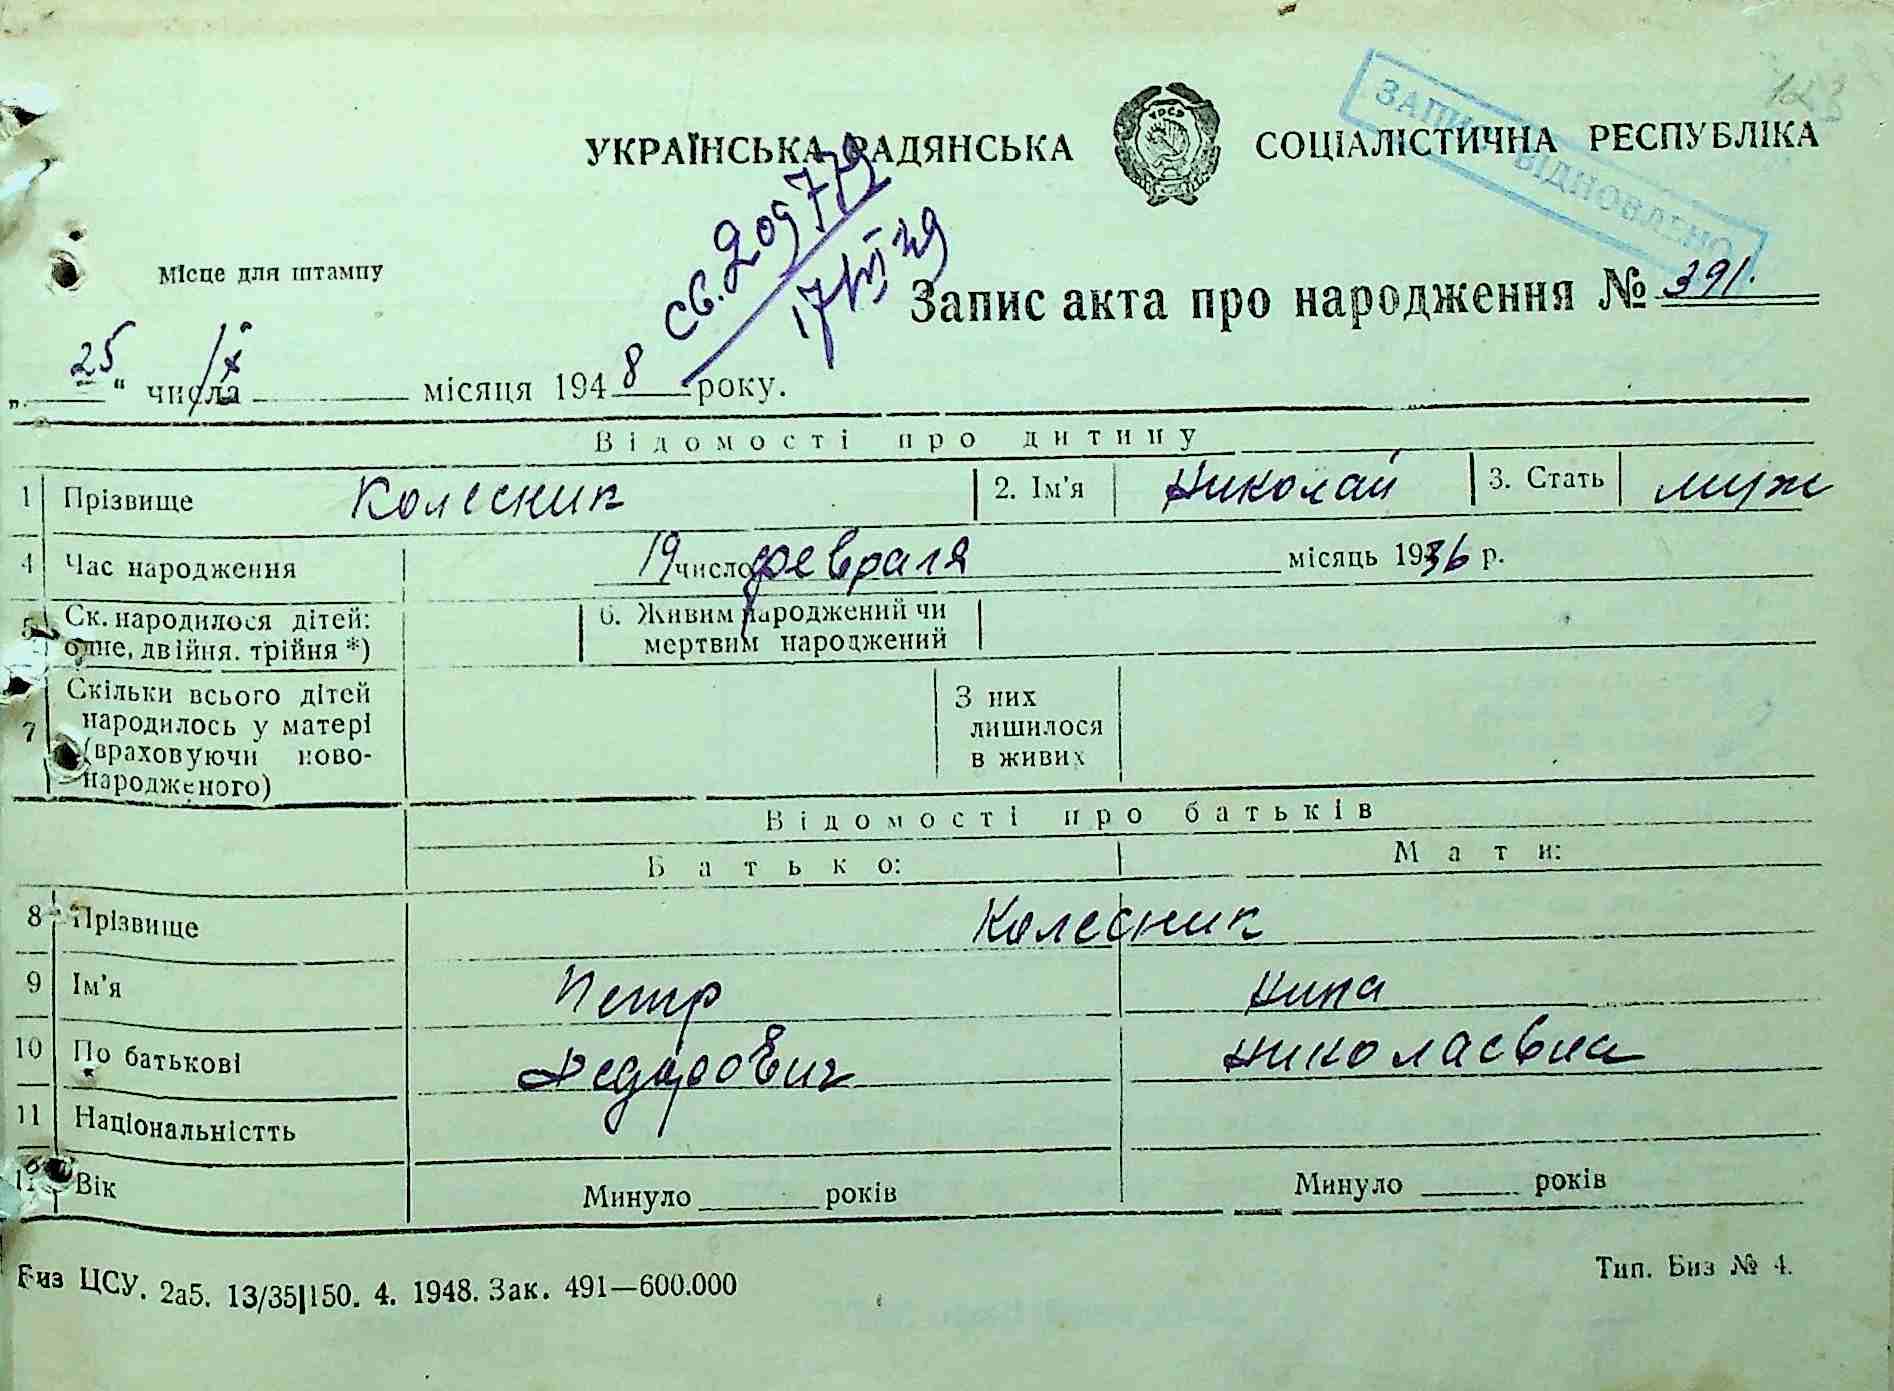 123
ЗАПИС ВІДНОВЛЕНО
УКРАЇНСЬКА РАДЯНСЬКА СОЦІАЛІСТИЧНА РЕСПУБЛІКА
УРСР
Місце для штампу
св. 209779
17/VI 49
Запис акта про народження № 391.
„25“ числа IX місяця 1948 року.
Відомості про дитину
1 Прізвище Колесник 2. Ім'я Николай 3. Стать муж
4 Час народження 19 число февраля місяць 1936 р.
5 Ск. народилося дітей: 6. Живим народжений чи
одне, двійня. трійня *) мертвим народжений
Скільки всього дітей З них
7 народилось у матері лишилося
(враховуючи ново- в живих
народженого)
Відомості про батьків
Батько: Мати:
8 Прізвище Колесник
9 Ім'я Петр Нина
10 По батькові Федорович Николаевна
11 Національністть
12 Вік Минуло ____ років Минуло ____ років
Биз ЦСУ. 2а5. 13/35|150. 4. 1948. Зак. 491—600.000 Тип. Биз № 4.